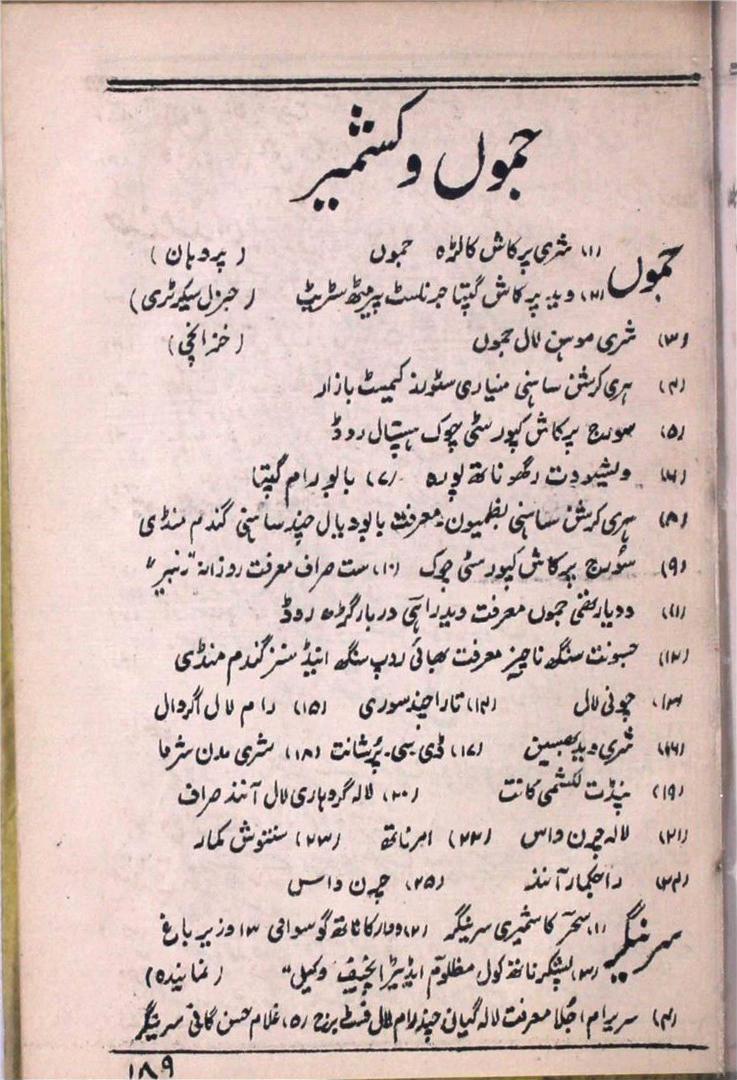 جموں و کشمیر
جموں
(۱) شری پرکاش کالڑہ جموں (پردہان)
(۲) وید پرکاش گپتا جرنلسٹ پیر مٹھ سٹریٹ (جنرل سیکرٹری)
(۳) شری موہن لال جموں (خزانچی)
(۴) ہری کرشن ساہنی منیاری سٹورز کیمیٹ بازار
(۵) سورج پرکاش کپور سٹی چوک ہسپتال روڈ
(۶) وشیودت رگھوناتھ پورہ (۷) بابو رام گپتا
(۸) ہری کرشن ساہنی معرفت بابو دیال چند ساہنی گندم منڈی
(۹) سورج پرکاش کپور سٹی چوک (۱۰) ست صراف معرفت روزانہ "رنبیر"
(۱۱) ودیارتھی جموں معرفت وید راہی دربار گڑھ روڈ
(۱۲) جسونت سنگھ ناچیز معرفت بھائی روپ سنگھ اینڈ سنز گندم منڈی
(۱۳) چونی لال (۱۴) تارا چند سوری (۱۵) رام لال اگروال
(۱۶) شری وید بھسین (۱۷) ڈی سی۔ پرشانت (۱۸) شری مدن شرما
(۱۹) پنڈت لکشمی کانت (۲۰) لالہ گردہاری لال آنند صراف
(۲۱) لالہ چرن داس (۲۲) امر ناتھ (۲۳) سنتوش کمار
(۲۴) راجکمار آنند (۲۵) چرن داس
سرینگر
(۱) سحر کاشمیری سرینگر (۲) دوارکا ناتھ گوسوامی ۱۳ وزیر باغ
(۳) پشکر ناتھ کول مظلوم ایڈیٹر انچیف "وکیل" (نمایندہ)
(۴) سریرام معرفت لالہ گیان چند رام لال فسٹ برج (۵) غلام حسن گانی سرینگر
۱۸۹